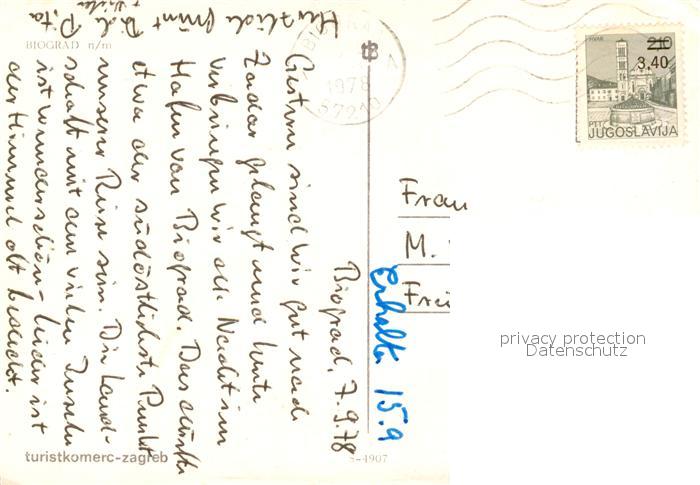 BIOGRAD n/m
Biograd, 7.9.78
Gestern sind wir gut nach
Zadar gelangt und heute
verbringen wir die Nacht im
Hafen von Biograd. Das dürfte
etwa der südöstlichste Punkt
unserer Reise sein. Die Land-
schaft mit den vielen Inseln
ist wunderschön - leider ist
der Himmel oft bedeckt.
Herzliche Grüsse
turistkomerc-zagreb
4907
1978
57210
HVAR
210
3,40
PTT
JUGOSLAVIJA
Frau
M.
Frei
Erhalten 15.9
privacy protection
Datenschutz